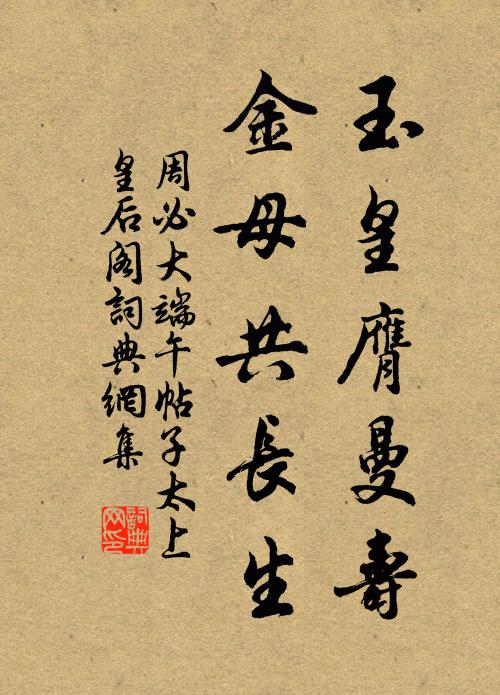 玉皇膺曼壽
金母共長生
周必大端午帖子太上
皇后阁詞典網集
詞典
网印